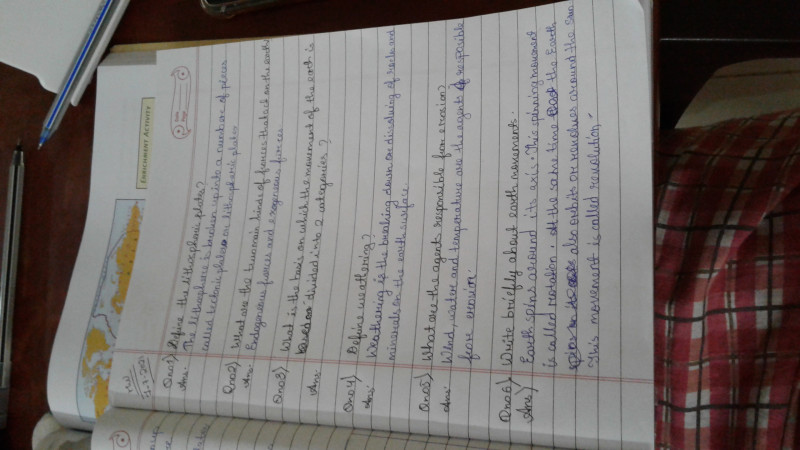 ENRICHMENT ACTIVITY
Date
Page
HW
Qno1) Define the lithospheric plates?
Ans: The lithosphere is broken up into a number of pieces
called tectonic plates or lithospheric plates
Qno2) What are the two main kinds of forces that act on the earth
Ans: Endogenous forces and exogenous forces
Qno3) What is the basis on which the movement of the earth is
divided into 2 categories?
Ans:
Qno4) Define weathering?
Ans: Weathering is the breaking down or dissolving of rocks and
minerals on the earth surface
Qno5) What are the agents responsible for erosion?
Ans: Wind, water and temperature are the agents responsible
for erosion.
Qno6) Write briefly about earth movements.
Ans) Earth spins around its axis. This spinning movement
is called rotation. At the same time the Earth
also orbits or revolves around the Sun.
This movement is called revolution.